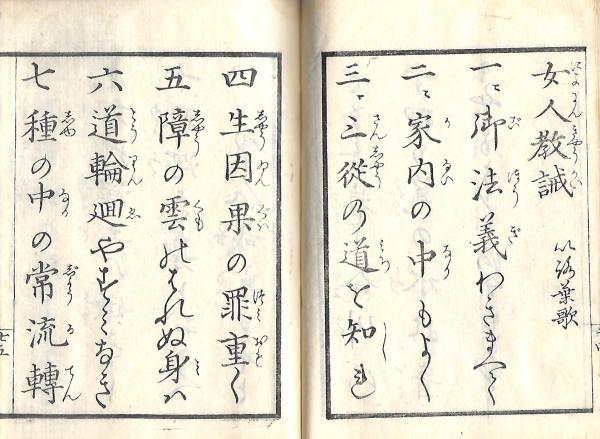 女人教誡 いろ葉歌
一ニ御法義のわきまへて
二ニ家内の中もよく
三ニ三従の道を知れ
四生因果の罪重く
五障の雲のはれぬ身ハ
六道輪廻やすみなき
七種の中の常流轉